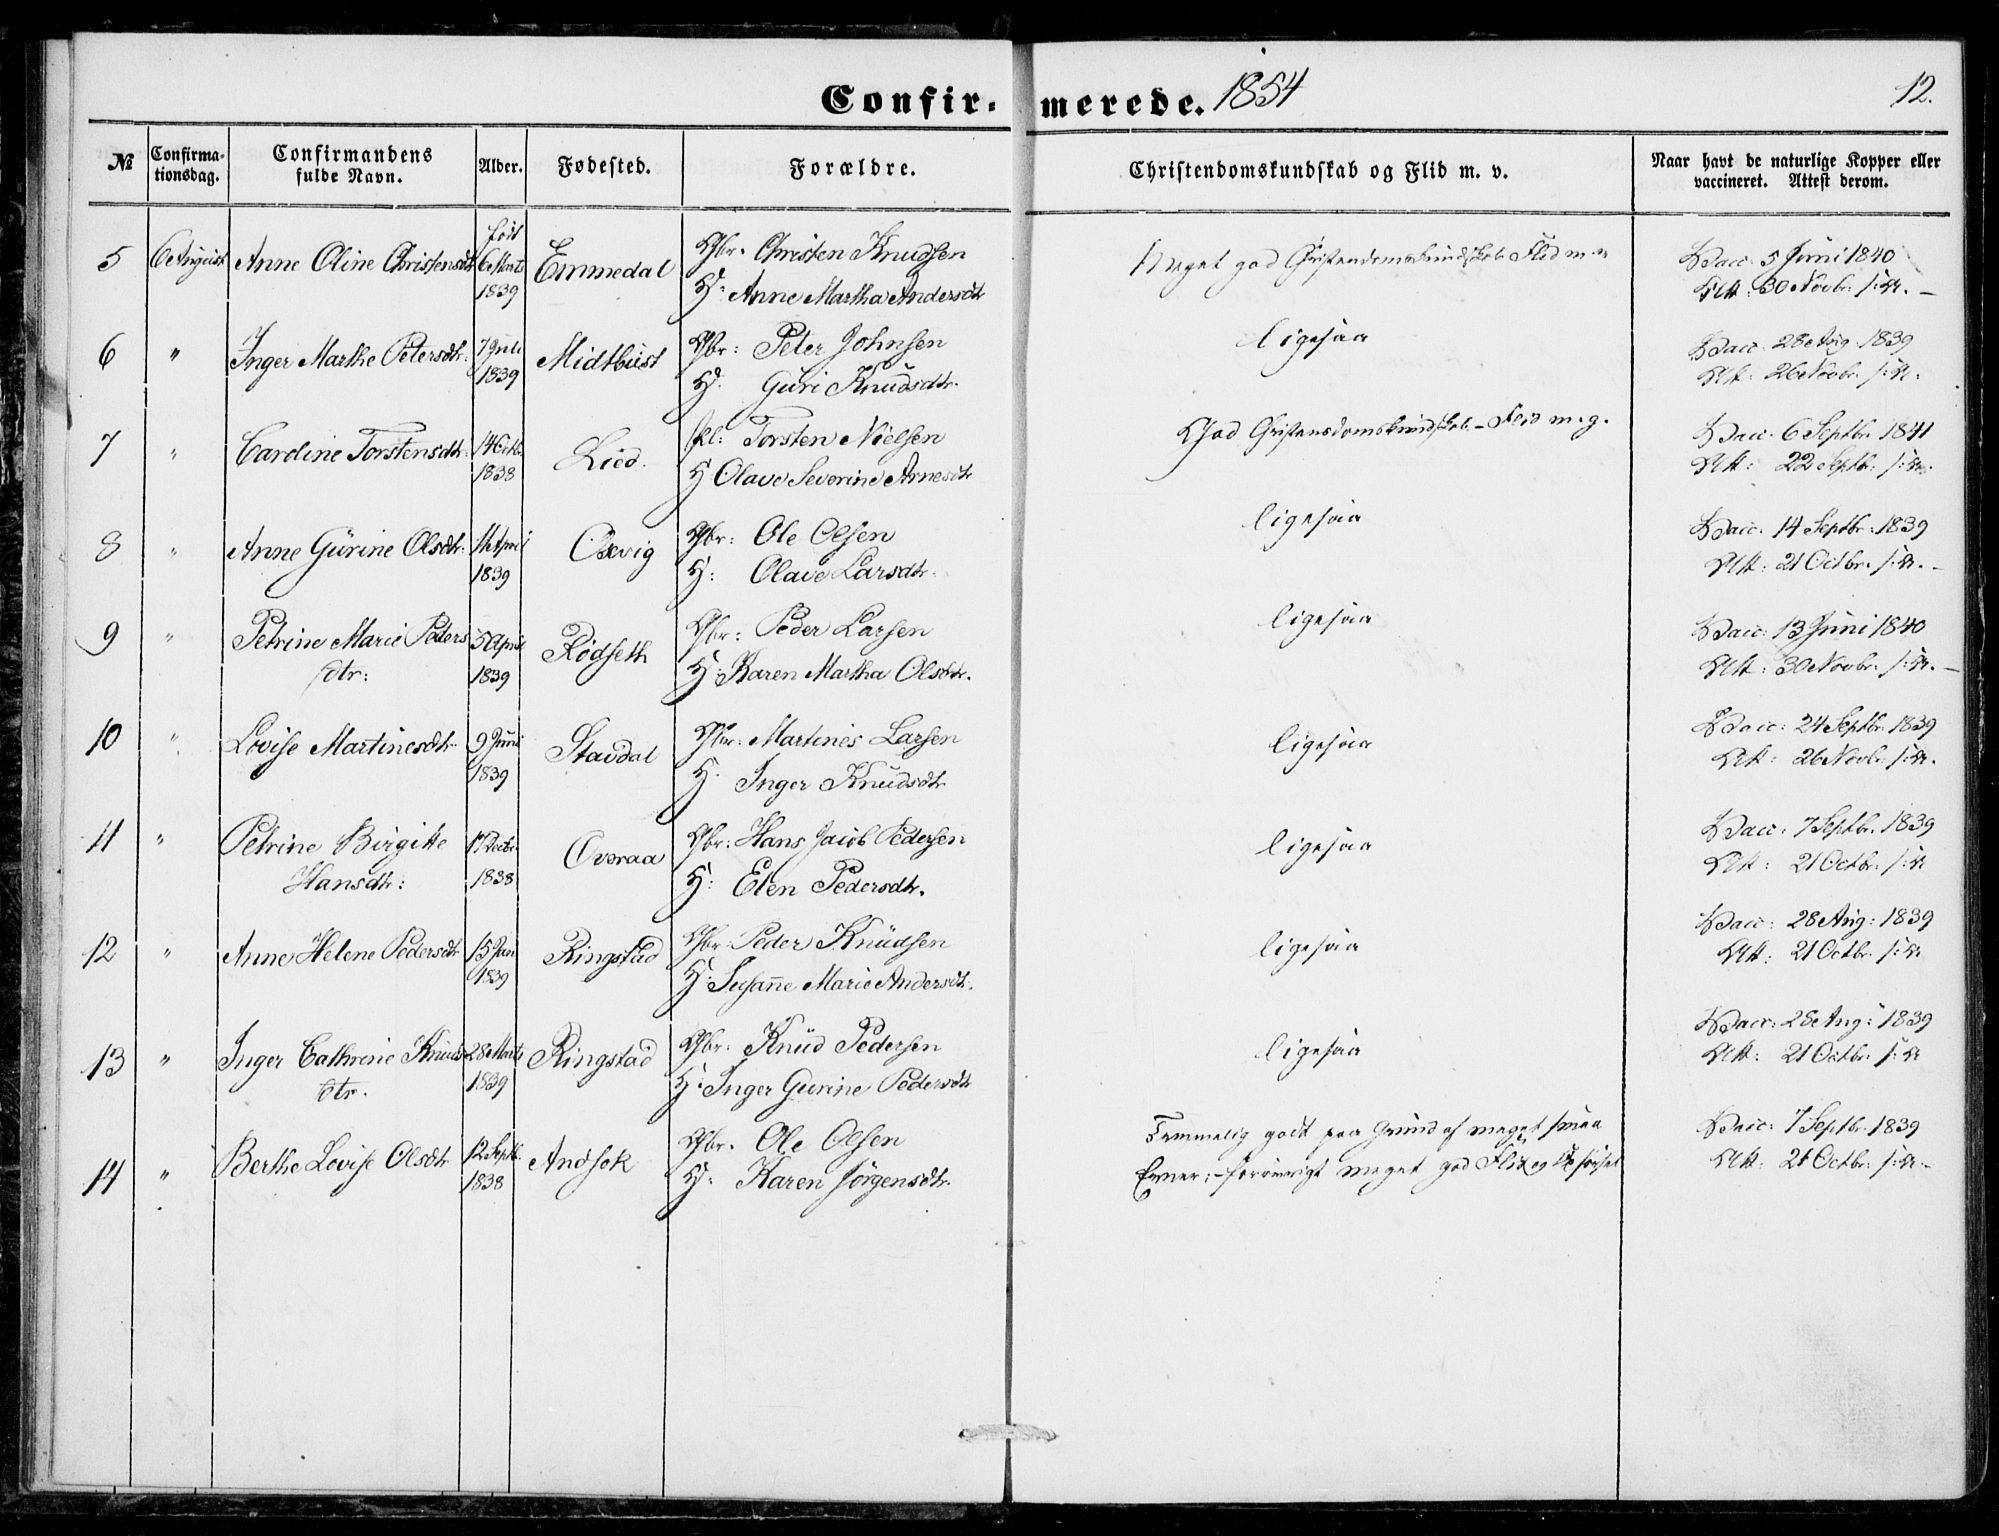 Confirmerede. 1854
12.
№ Confirmationsdag. Confirmandens fulde Navn. Alder. Fødested. Forældre. Christendomskundskab og Flid m. v. Naar havt de naturlige Kopper eller vaccineret. Attest derom.
5 6 August Anne Oline Christensdtr født 6 Marts 1839 Emmedal Gbr: Christen Knudsen
H: Anne Martha Andersdtr
Meget god Christendomskundskab Flid m.
Vacc. 5 Juni 1840
Att: 30 Novbr. s: A.
6 " Inger Marthe Petersdtr. 7 Juli 1839 Midtbust Gbr: Peter Johnsen
H. Guri Knudsdtr.
ligesaa
Vacc. 28 Aug. 1839
Att: 26 Novbr. s: A.
7 " Caroline Torstensdtr. 14 Octbr 1838 Lied. Torsten Nielsen
H Olave Severine Arnesdtr
God Christendomskundskab - Flid m. g.
Vacc. 6 Septbr. 1841
Att: 22 Septbr. s: A.
8 " Anne Gurine Olsdtr. April 1839 Oxvig Gbr: Ole Olsen
H: Olave Larsdtr.
ligesaa
Vacc. 14 Septbr. 1839
Att: 21 Octbr. s: A.
9 " Petrine Marie Peders
dtr: 5 April 1839 Rødseth Gbr: Peder Larsen
H: Karen Martha Olsdtr.
ligesaa
Vacc: 13 Juni 1840
Att: 30 Novbr. s: A.
10 " Lovise Martinesdtr 9 Juni 1839 Stavdal Gbr: Martines Larsen
H. Inger Knudsdtr
ligesaa
Vacc: 24 Septbr. 1839
Att: 26 Novbr. s: A.
11 " Petrine Birgitte
Hansdtr: 17 Decbr. 1838 Overaa Gbr: Hans Jacob Pedersen
H: Elen Pedersdtr.
ligesaa
Vacc: 7 Septbr. 1839
Att: 21 Octbr. s: A
12 " Anne Helene Pedersdtr 15 Jan 1839 Ringstad Gbr: Peder Knudsen
H: Susanne Marie Andersdtr.
ligesaa
Vacc: 28 Aug: 1839
Att: 21 Octbr. s: A
13 " Inger Cathrine Knuds
dtr. 28 Marts 1839 Ringstad Gbr. Knud Pedersen
H: Inger Gurine Pedersdtr
ligesaa
Vacc: 28 Aug: 1839
Att: 21 Octbr. s: A
14 " Berthe Lovise Olsdtr 12 Septbr. 1838 Andsok Gbr. Ole Olsen
H. Karen Jörgensdtr.
Temmelig godt paa Grund af meget smaa
Evner; - forøvrigt meget god Flid og Opførsel
Vacc: 7 Septbr. 1839
Att: 21 Octbr. s: A.